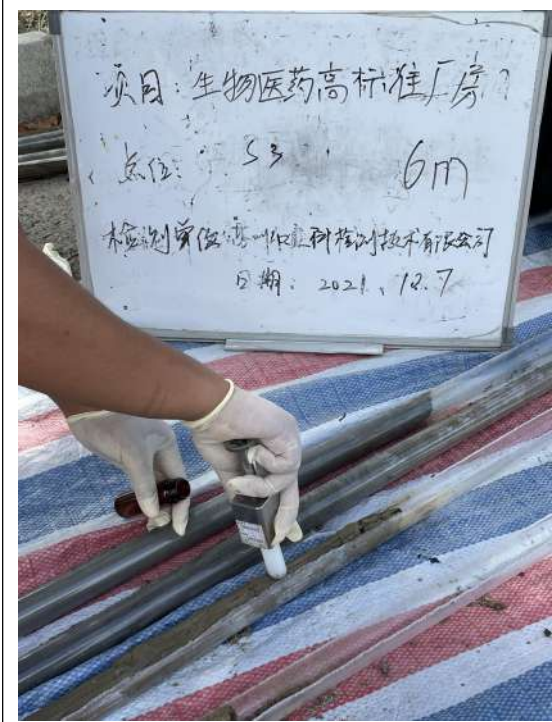 项目：生物医药高标准厂房
点位： S3 6m
检测单位：苏州 科检测技术有限公司
日期：2021、12.7